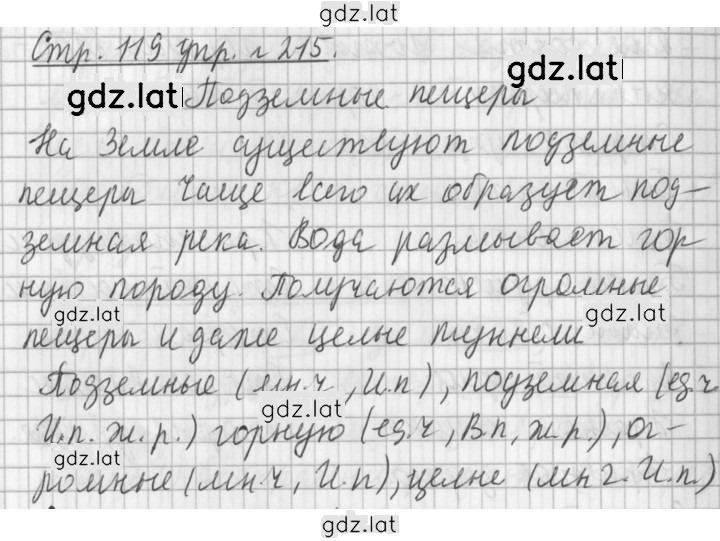 gdz.lat
Стр. 119 упр. № 215.
gdz.lat
gdz.lat Подземные пещеры
На Земле существуют подземные
пещеры Чаще всего их образует под-
земная река. Вода размывает гор
ную породу. Получаются огромные
gdz.lat gdz.lat
пещеры и даже целые туннели
Подземные (мн.ч, И.п), подземная (ед.ч
gdz.lat
И.п. ж.р.) горную (ед.ч, В.п, ж.р.), ог-
gdz.lat gdz.lat
ромные (мн.ч, И.п), целые (мн г. И.п.)
gdz.lat